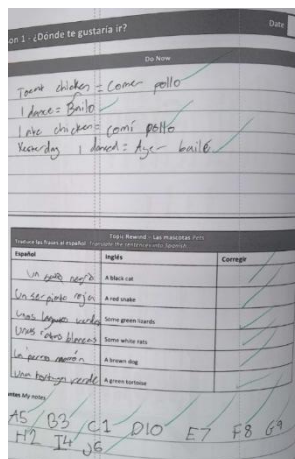 on 1 - ¿Dónde te gustaría ir?
Date
Do Now
chicken = Comer pollo
I dance = Bailo
I ate chicken = comí pollo
Yesterday I danced = Ayer bailé
Topic Rewind – Las mascotas Pets
Traduce las frases al español. Translate the sentences into Spanish.
Español Inglés Corregir
Un gato negro A black cat
Un serpiente roja A red snake
Unas verdes Some green lizards
Unas blancas Some white rats
La perro marrón A brown dog
Una tortuga verde A green tortoise
My notes
A5 B3 C1 D10 E7 F8 G9
H2 I4 J6